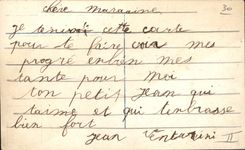 30
chère marraine
je tenvoi cette carte
pour te faire voir mes
progré entien mes
tante pour moi
ton petit Jean qui
taime et qui tenbrasse
bien fort
Jean Venturini II